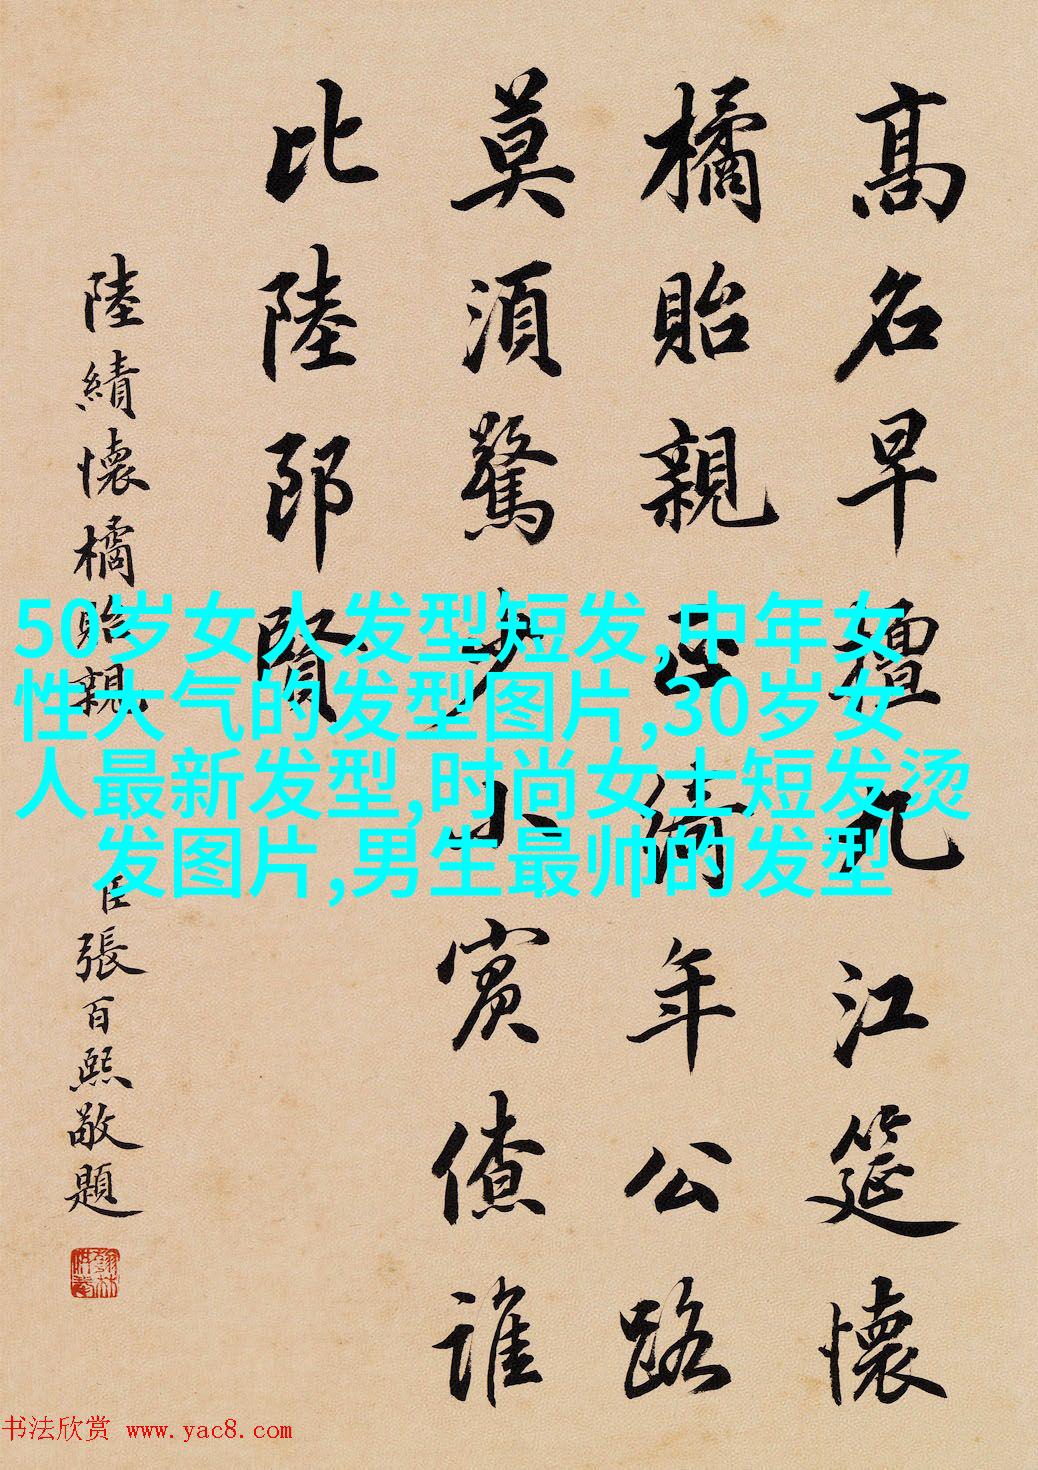 髙名早擅九江筵懷
橘貽親正年公路
莫須驚少小賓僚誰
比陸郎賢
陸績懷橘貽親
臣張百熙敬題
50岁女人发型短发,中年女
性大气的发型图片,30岁女
人最新发型,时尚女士短发烫
发图片,男生最帅的发型
书法欣赏 www.yac8.com